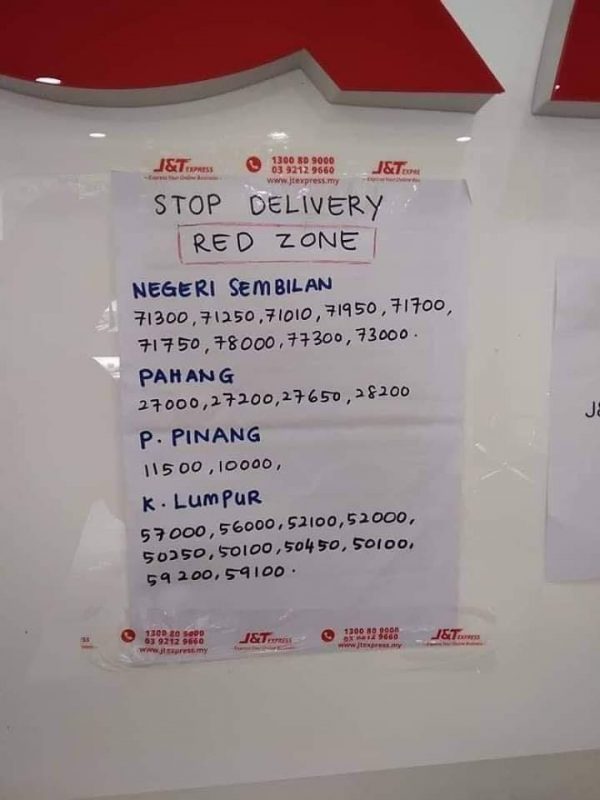 J&T EXPRESS 1300 80 9000 J&T EXPRE
Express Your Online Business 03 9212 9660
www.jtexpress.my
STOP DELIVERY
RED ZONE
NEGERI SEMBILAN
71300, 71250, 71010, 71950, 71700,
71750, 78000, 77300, 73000.
PAHANG
27000, 27200, 27650, 28200
P. PINANG
11500, 10000,
K. LUMPUR
57000, 56000, 52100, 52000,
50250, 50100, 50450, 50100,
59200, 59100.
J&
1300 80 9000 J&T EXPRESS 1300 80 9000 J&T EXPRESS
03 9212 9660 Express Your Online Business 03 9212 9660 Express Your Online Business
www.jtexpress.my www.jtexpress.my